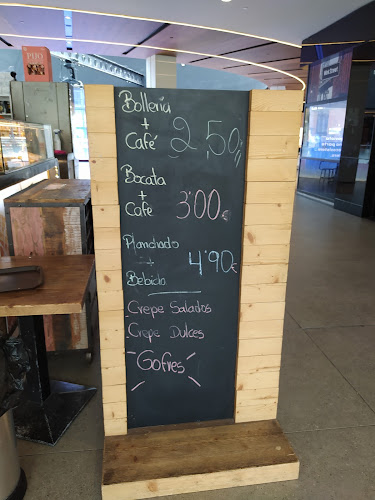 Bollería
+
Café 2,50
Bocata
+
Café 3'00€
Planchado
+
Bebida 4'90€
Crepe Salados
Crepe Dulces
Gofres